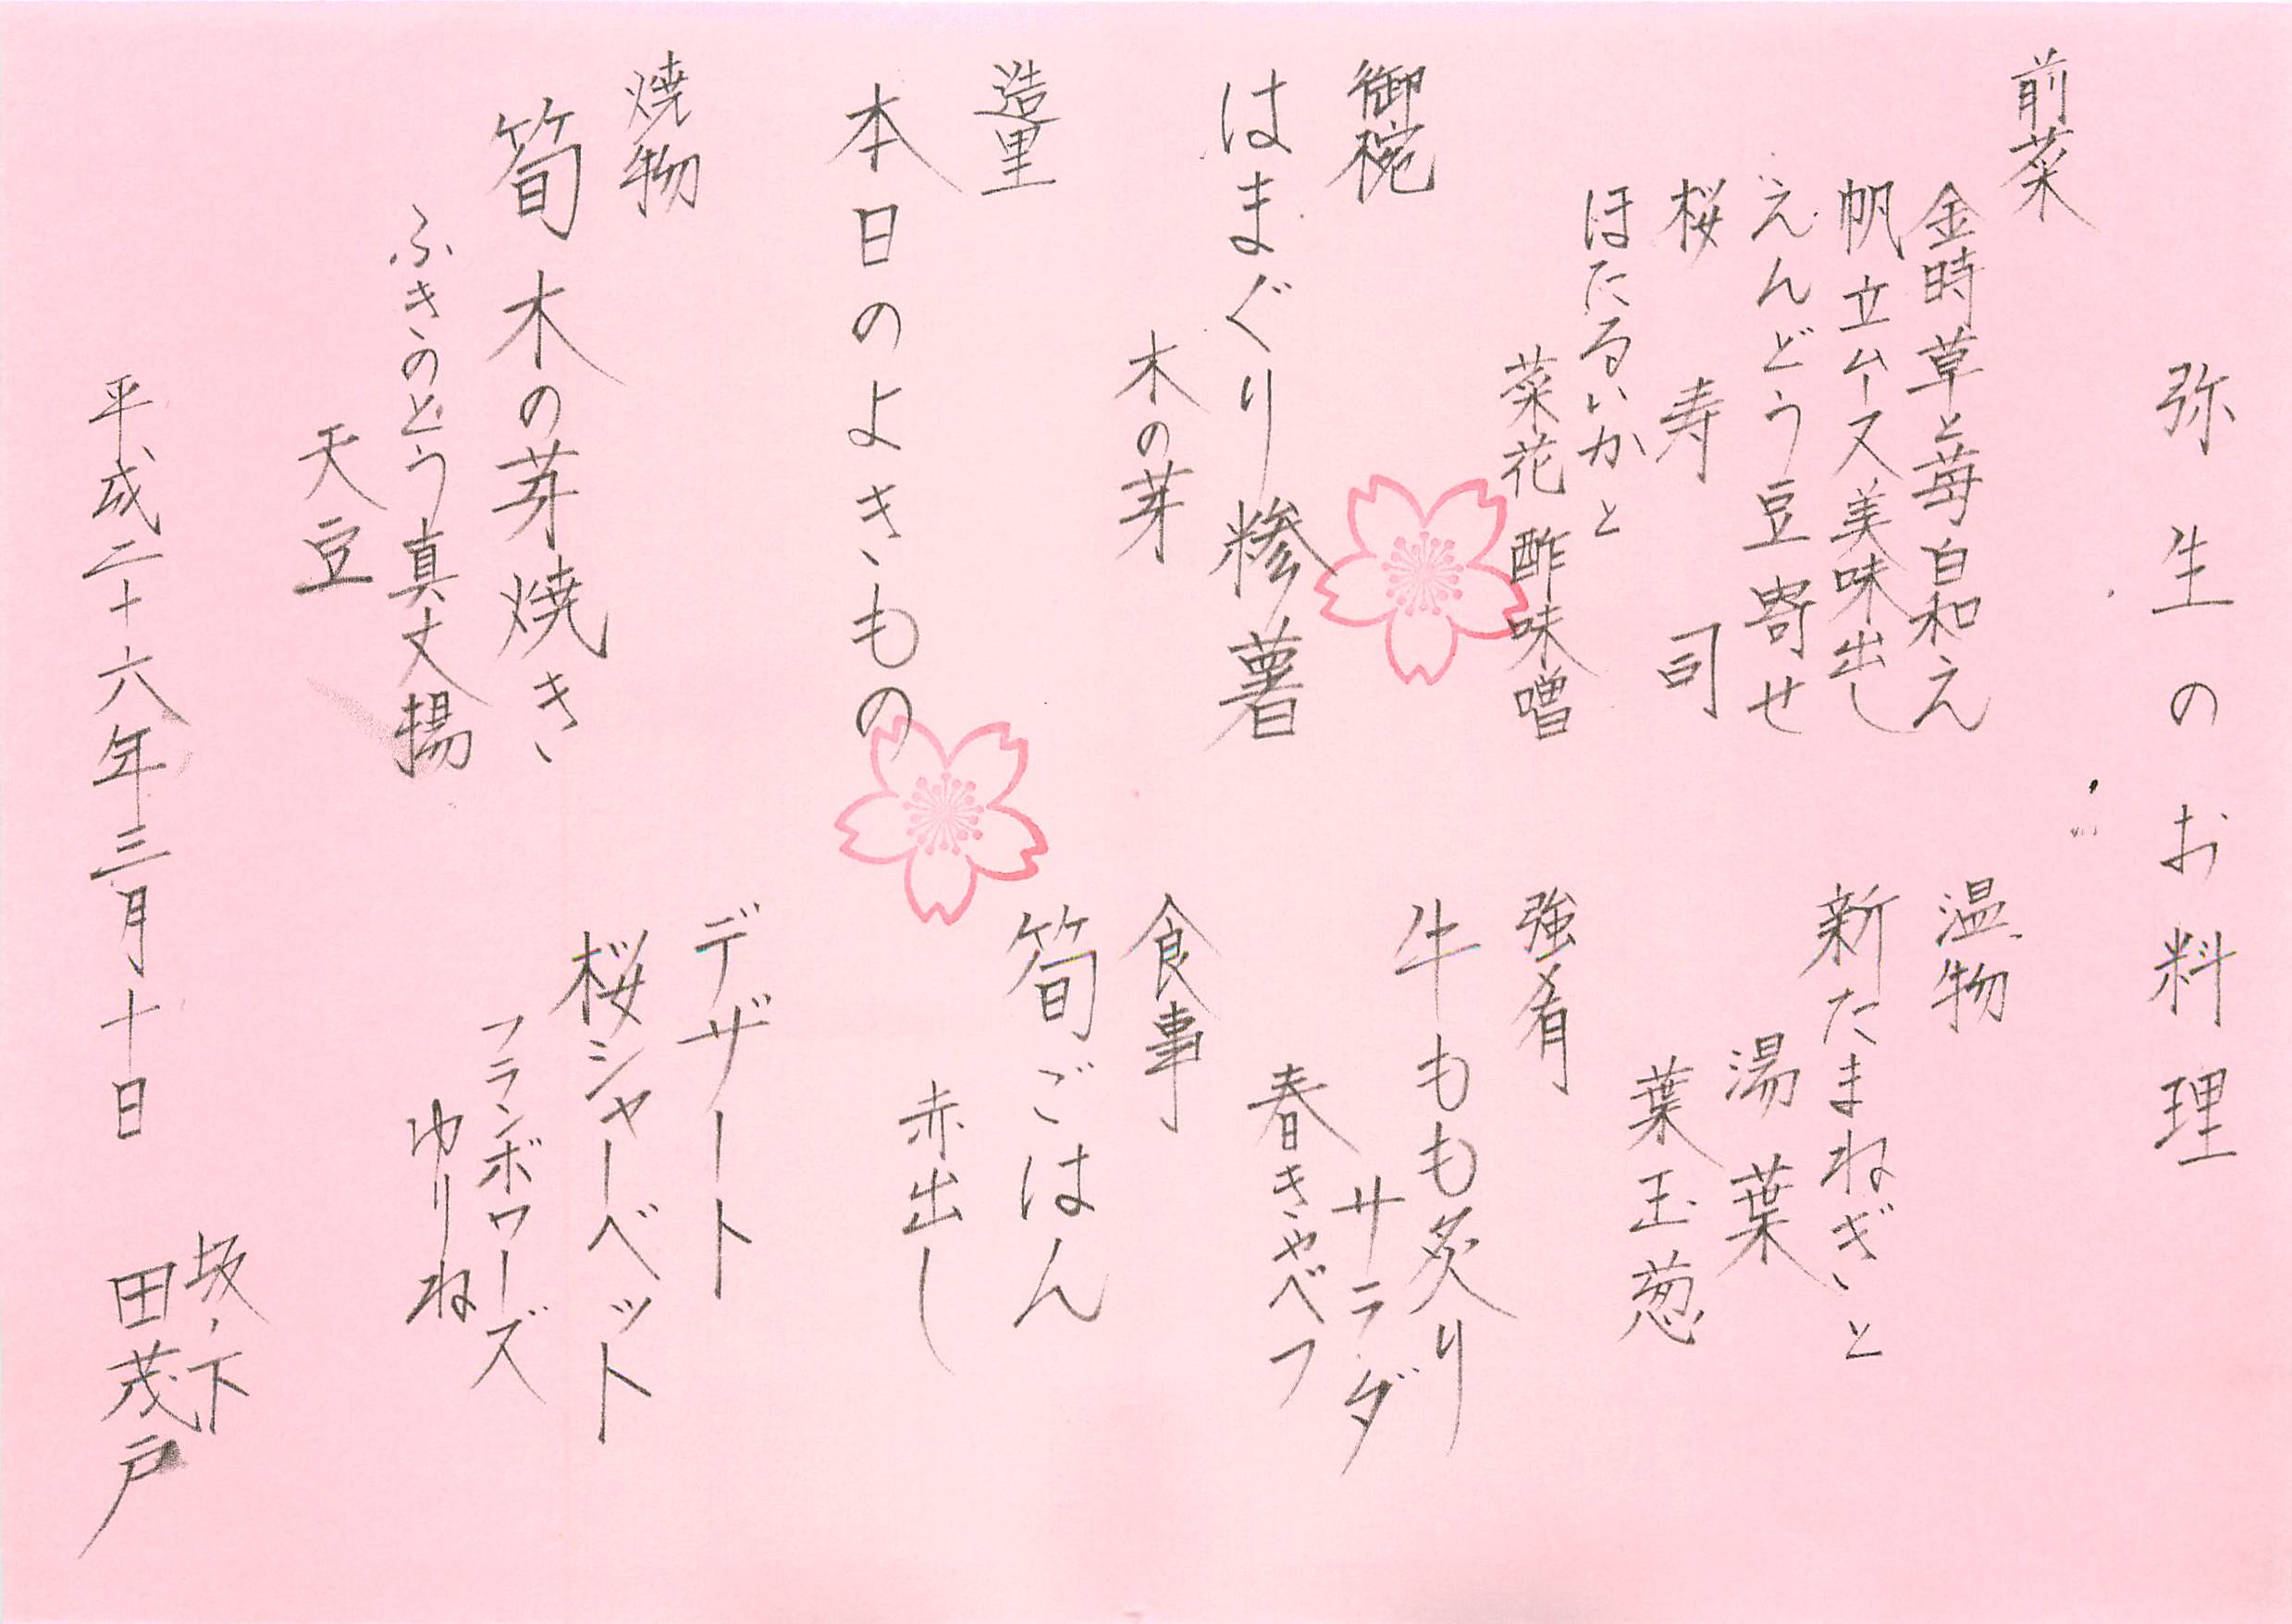 弥生のお料理
前菜
金時草と苺白和え
帆立ムース美味出し
えんどう豆寄せ
桜寿司
ほたるいかと
菜花酢味噌
御椀
はまぐり糝薯
木の芽
造里
本日のよきもの
焼物
筍木の芽焼き
ふきのとう真丈揚
天豆
温物
新たまねぎと
湯葉
葉玉葱
強肴
牛もも炙り
サラダ
春きゃべつ
食事
筍ごはん
赤出し
デザート
桜シャーベット
フランボワーズ
ゆりね
平成二十六年三月十日
坂下
田茂戸